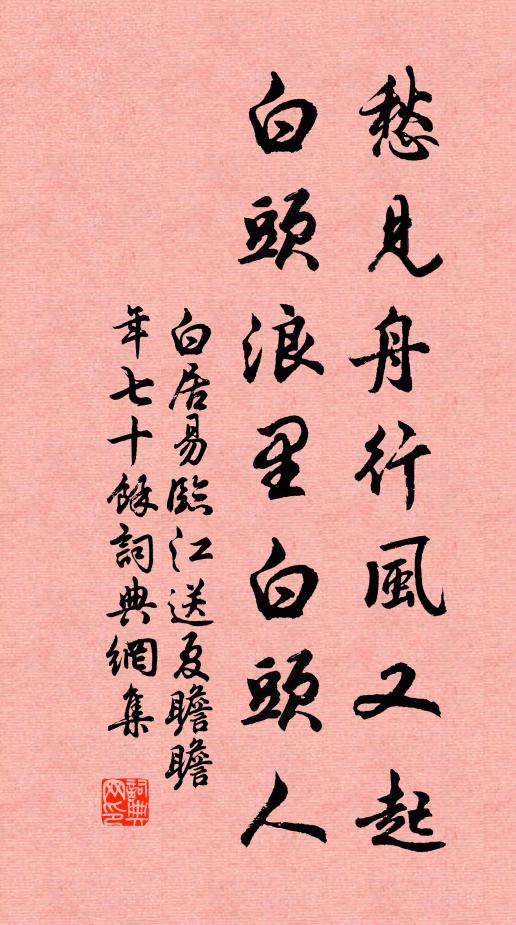 愁見舟行風又起
白頭浪里白頭人
白居易臨江送夏瞻瞻
年七十餘詞典網集
詞典网印